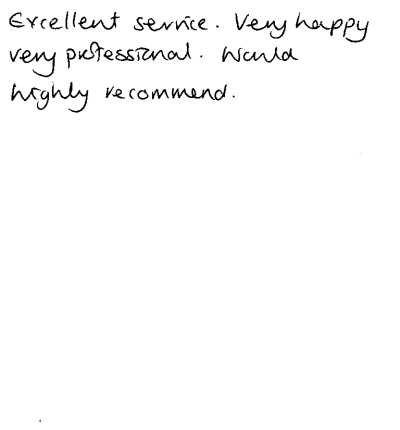 Excellent service. Very happy
very professional. Would
highly recommend.